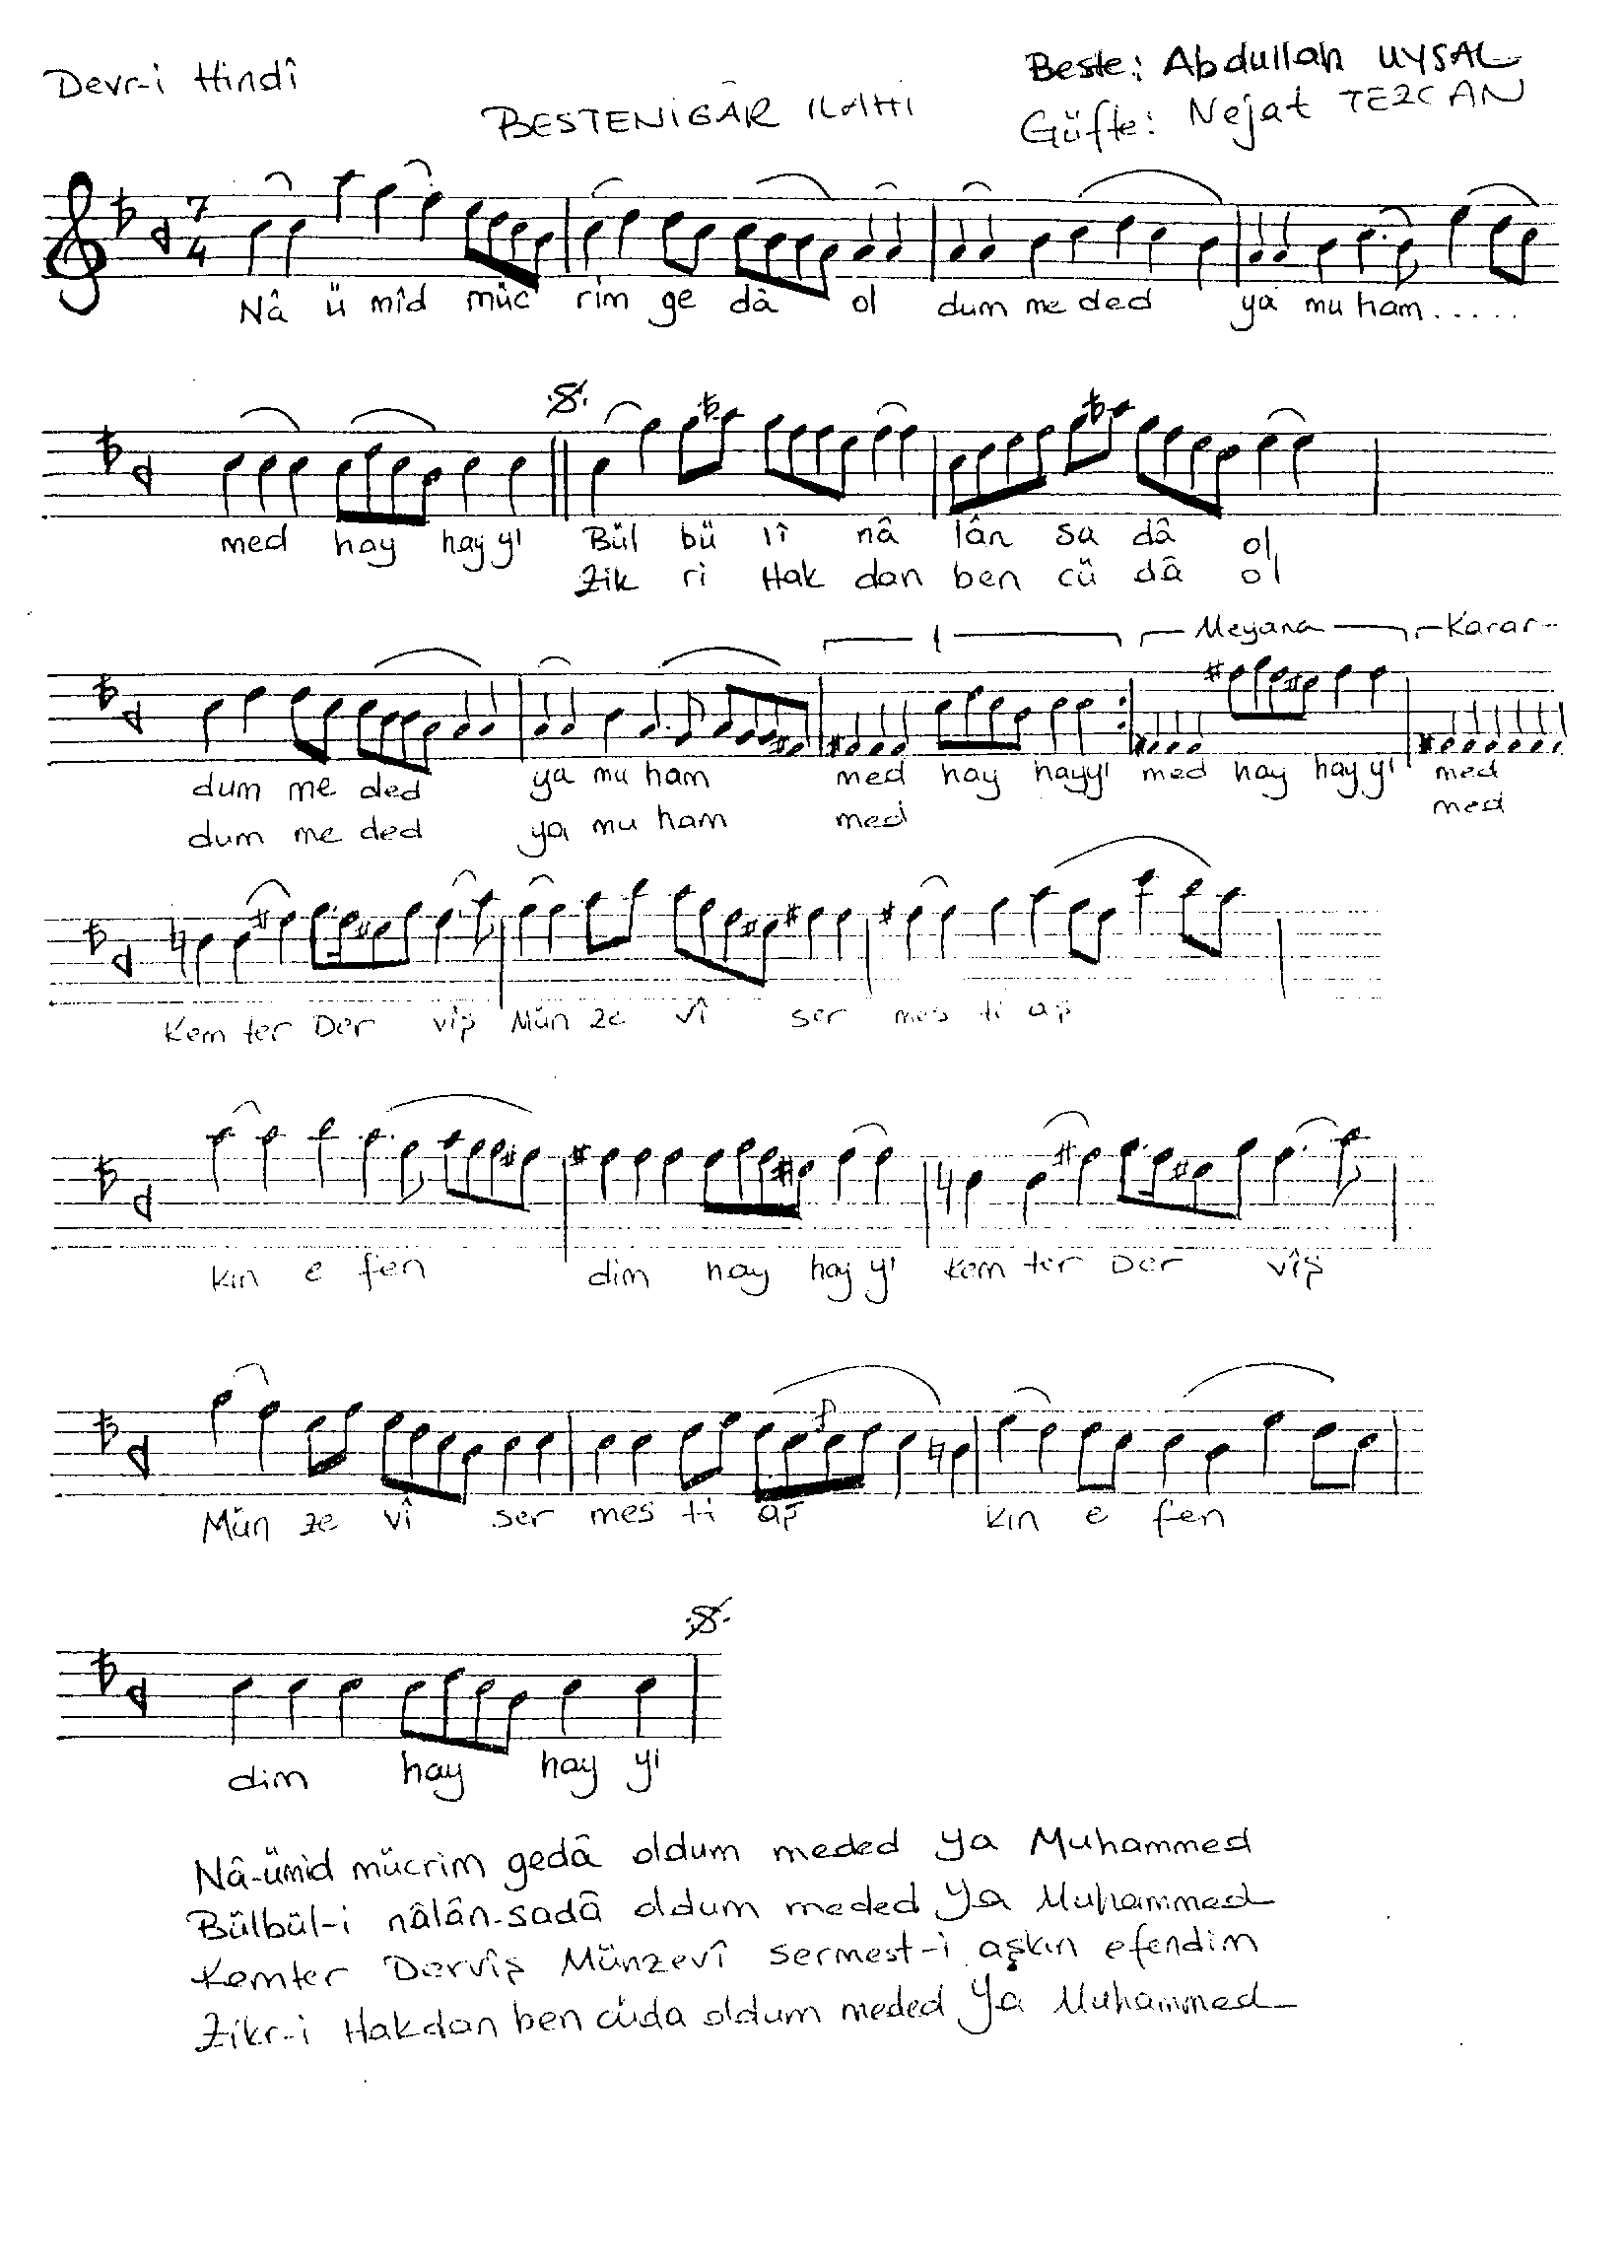 Devr-i Hindî
Beste: Abdullah UYSAL
BESTENİGÂR İLAHİ
Güfte: Nejat TEZCAN
7
4
Nâ ü mîd müc rim ge dâ ol dum me ded ya mu ham.....
med hay hay yı Bül bü lî nâ lân sa dâ ol
Zik ri Hak dan ben cü dâ ol
1 Meyana Karar
dum me ded ya mu ham med hay hayyı med hay hay yı med
dum me ded ya mu ham med med
Kem ter Der vîş Mün ze vî ser mes ti aş
kın e fen dim hay hay yı Kem ter Der vîş
Mün ze vî ser mes ti aş kın e fen
dim hay hay yı
Nâ-ümid mücrim gedâ oldum meded ya Muhammed
Bülbül-i nâlân-sadâ oldum meded Ya Muhammed
Kemter Dervîş Münzevî sermest-i aşkın efendim
Zikr-i Hakdan ben cüda oldum meded Ya Muhammed